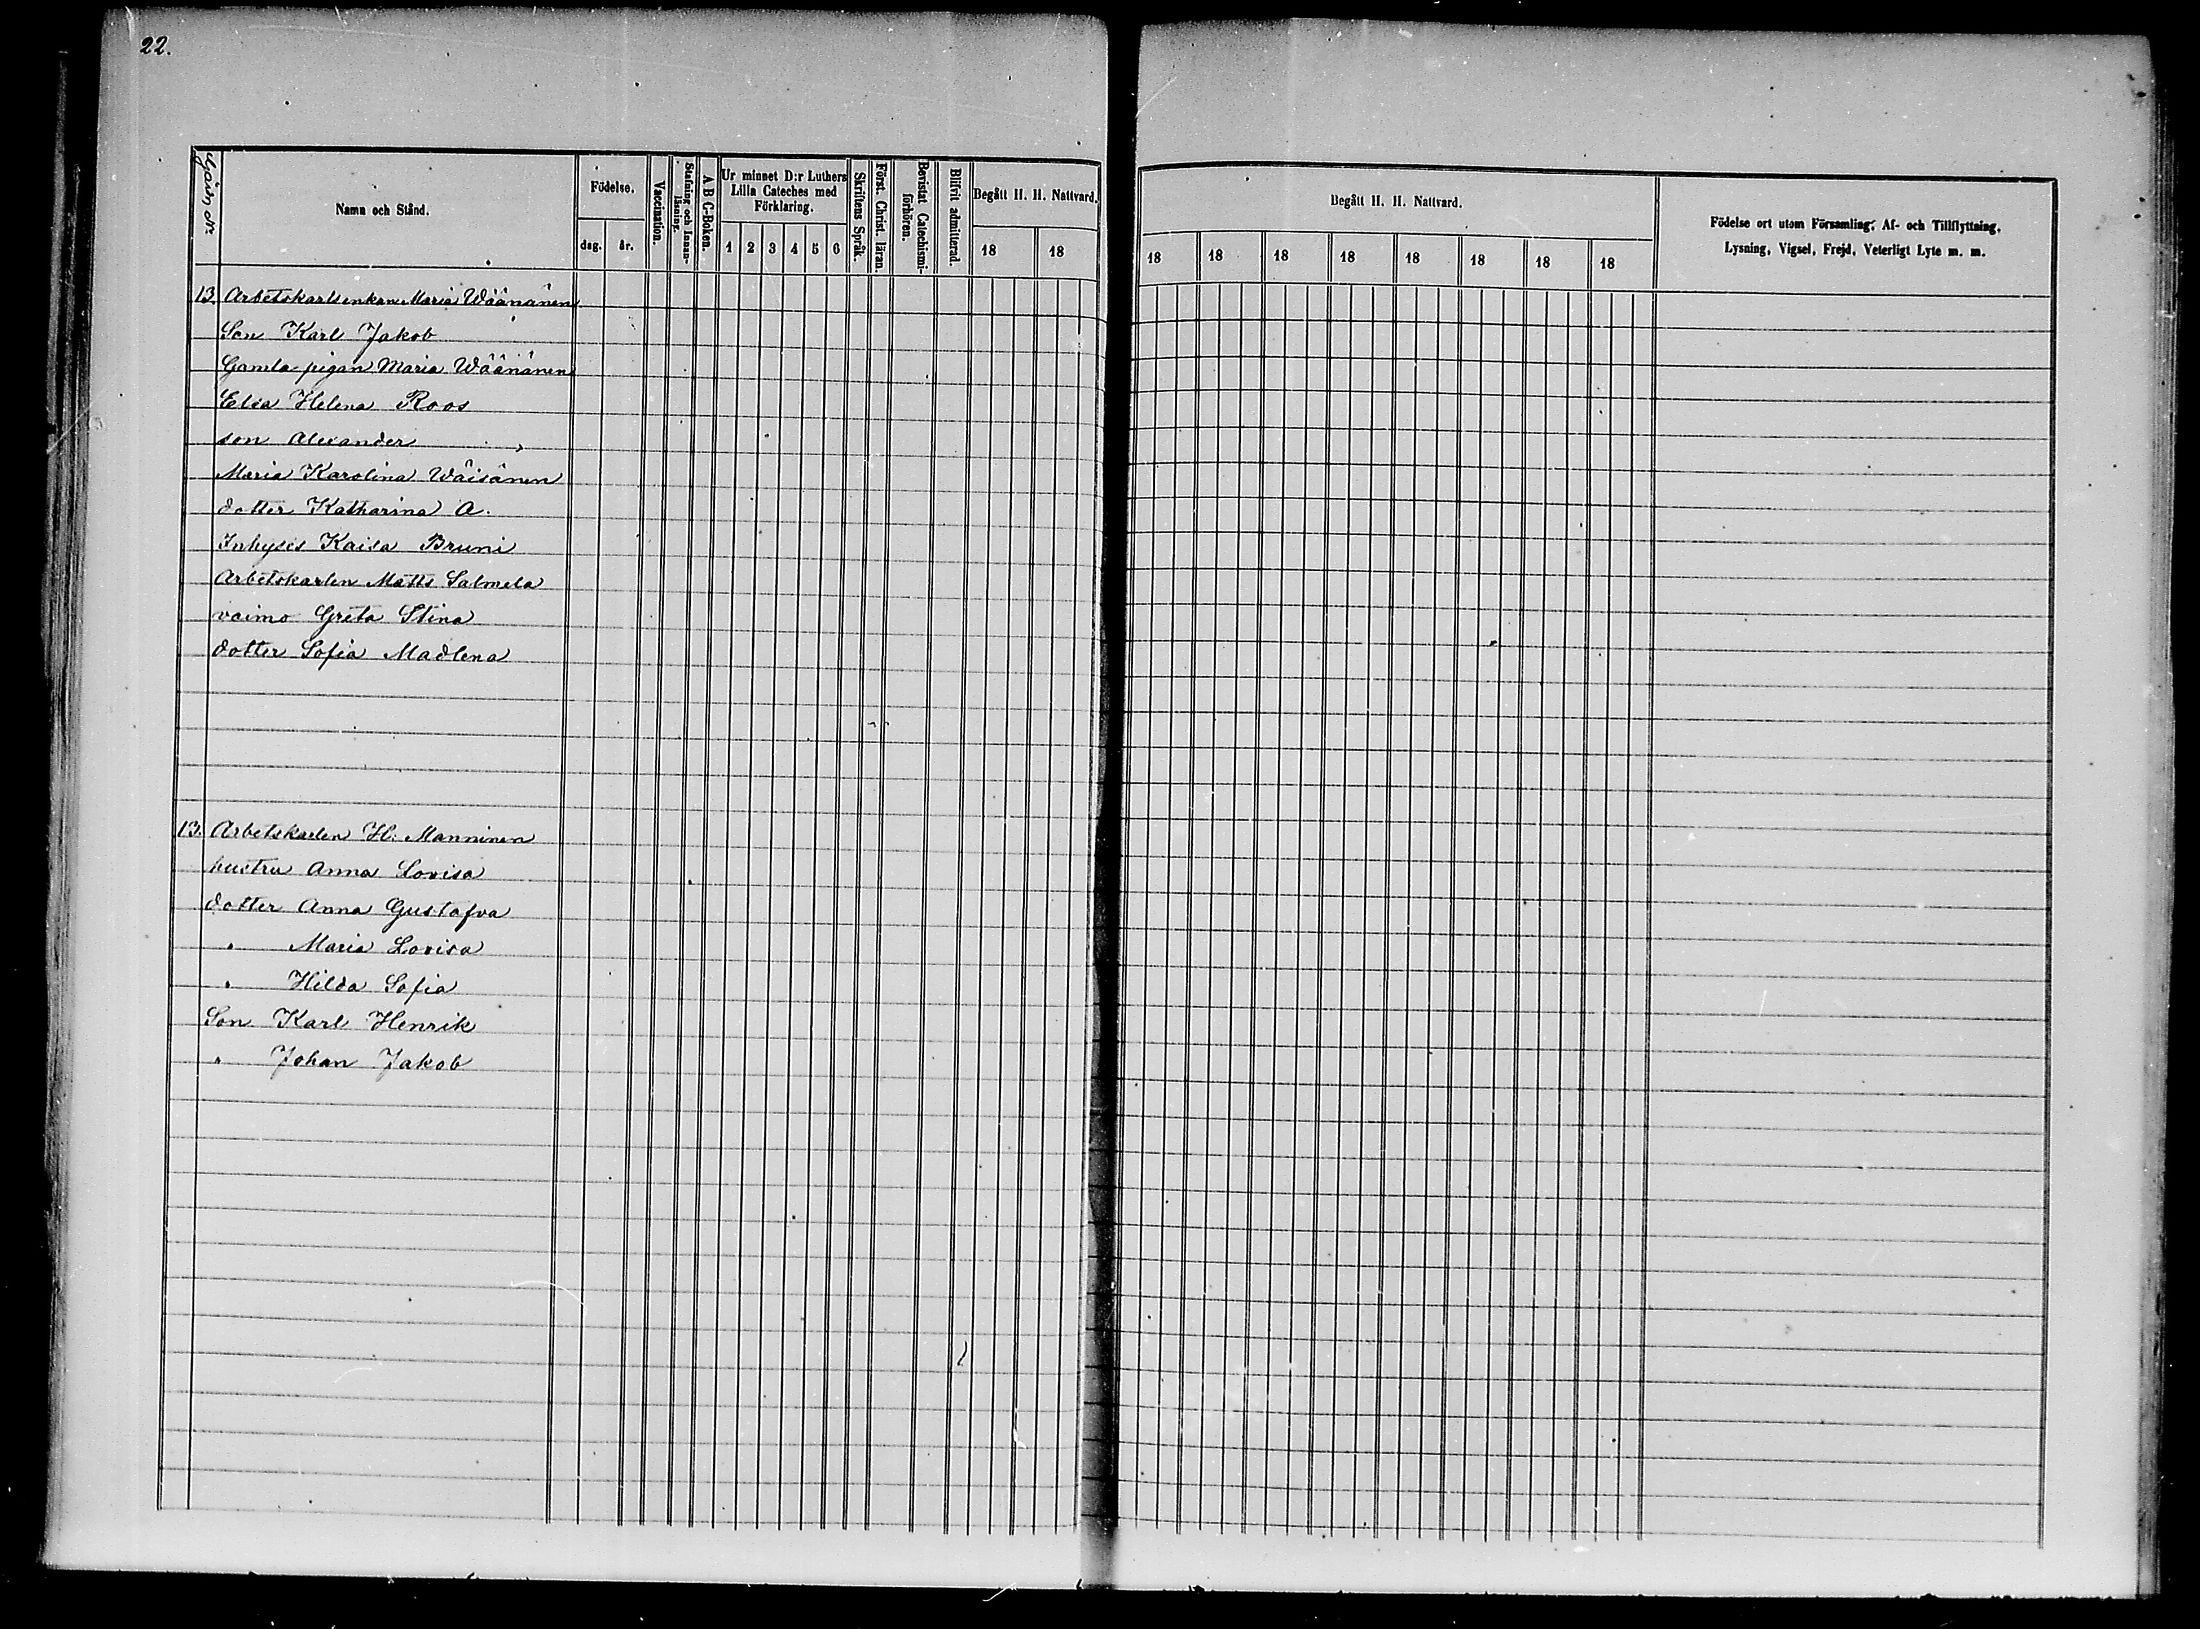 22.
Gårds No.
Namn och Stånd.
Födelse.
dag.
år.
Vaccination.
Stafning och Innanläsning.
A B C-Boken.
Ur minnet D:r Luthers
Lilla Cateches med
Förklaring.
1 2 3 4 5 6
Skriftens Språk.
Först. Christ. läran.
Bevistat Catechismi-
förhören.
Blifvit admitterad.
Begått H. H. Nattvard.
18 18
Begått H. H. Nattvard.
18 18 18 18 18 18 18 18
Födelse ort utom Församling, Af- och Tillflyttning,
Lysning, Vigsel, Frejd, Veterligt Lyte m. m.
13. Arbetskarlsenkan Maria Wäänänen
Son Karl Jakob
Gamla pigan Maria Wäänänen
Elsa Helena Roos
son Alexander "
Maria Karolina Wäisänen
dotter Katharina A.
Inhyses Kaisa Bruni
Arbetskarlen Matts Salmela
vaimo Greta Stina
dotter Sofia Madlena
13. Arbetskarlen H. Manninen
hustru Anna Lovisa
dotter Anna Gustafva
" Maria Lovisa
" Hilda Sofia
Son Karl Henrik
" Johan Jakob